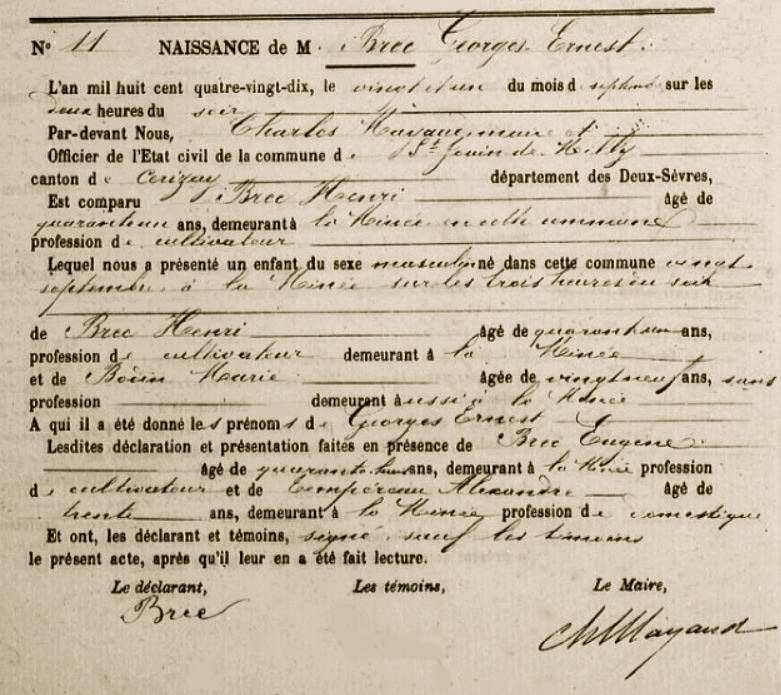 N° 11 NAISSANCE DE M. Brec Georges Ernest.
L'an mil huit cent quatre-vingt-dix, le vingt et un du mois d septembre sur les
deux heures du soir
Par-devant Nous, Charles Mayaud, maire et
Officier de l'Etat civil de la commune de St Jouin de Milly
canton de Cerizay département des Deux-Sèvres,
Est comparu Brec Henri âgé de
quarante un ans, demeurant à la Minée en cette commune
profession de cultivateur
Lequel nous a présenté un enfant du sexe masculin né dans cette commune vingt
septembre à la Minée sur les trois heures du soir
de Brec Henri âgé de quarante un ans,
profession de cultivateur demeurant à la Minée
et de Marie âgée de vingt neuf ans, sans
profession demeurant aussi à la Minée
A qui il a été donné les prénoms de Georges Ernest
Lesdites déclaration et présentation faites en présence de Brec Eugène
âgé de quarante ans, demeurant à la Minée profession
de cultivateur et de Tempéreau Alexandre âgé de
trente ans, demeurant à la Minée profession de domestique
Et ont, les déclarant et témoins, signé sauf les témoins
le présent acte, après qu'il leur en a été fait lecture.
Le déclarant, Les témoins, Le Maire,
Brec Ch Mayaud